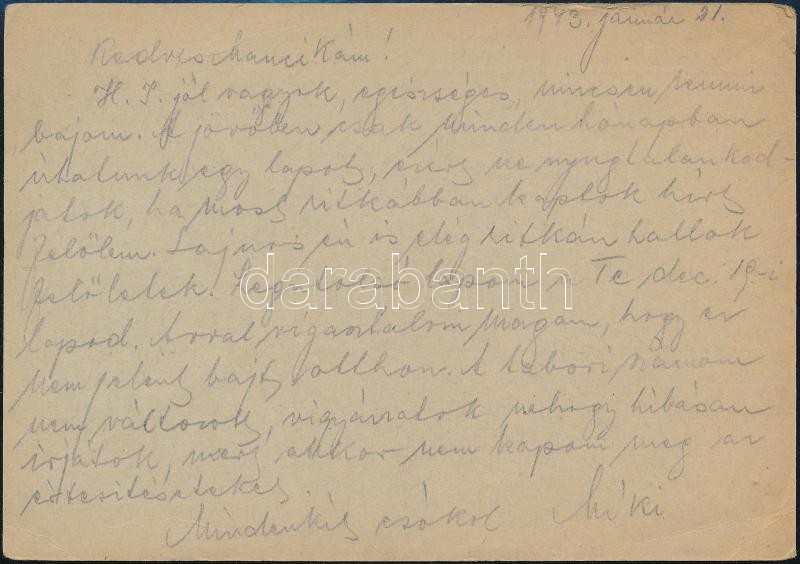 1943. január 21.
Kedves hancikám!
H. I. jól vagyok, egészséges, nincsen semmi
bajom. A jövőben csak minden hónapban
utalunk egy lapot, ezért ne nyugtalankod-
jatok, ha most ritkábban kaptok hírt
felőlem. Sajnos én is elég ritkán hallok
felőletek. Legutolsó lapom a Te dec. 19-i
lapod. Azzal vigasztalom magam, hogy ez
nem jelent bajt otthon. A tabori számom
nem változott, vigyázzatok nehogy hibásan
írjatok, mert akkor nem kapom meg az
értesitéseteket.
Mindenkit csókol Miki
darabanth